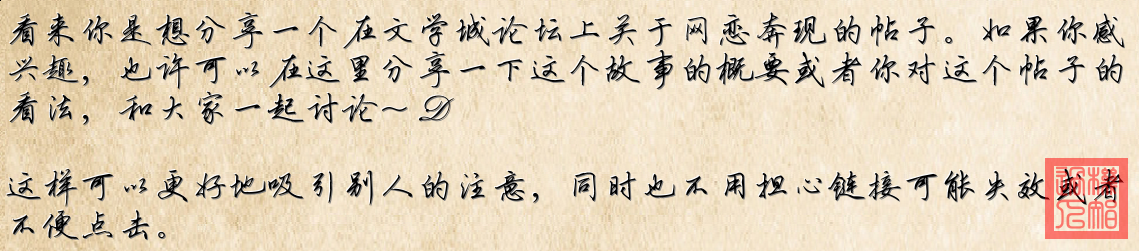 看来你是想分享一个在文学城论坛上关于网恋奔现的帖子。如果你感
兴趣，也许可以在这里分享一下这个故事的概要或者你对这个帖子的
看法，和大家一起讨论～D
这样可以更好地吸引别人的注意，同时也不用担心链接可能失效或者
不便点击。